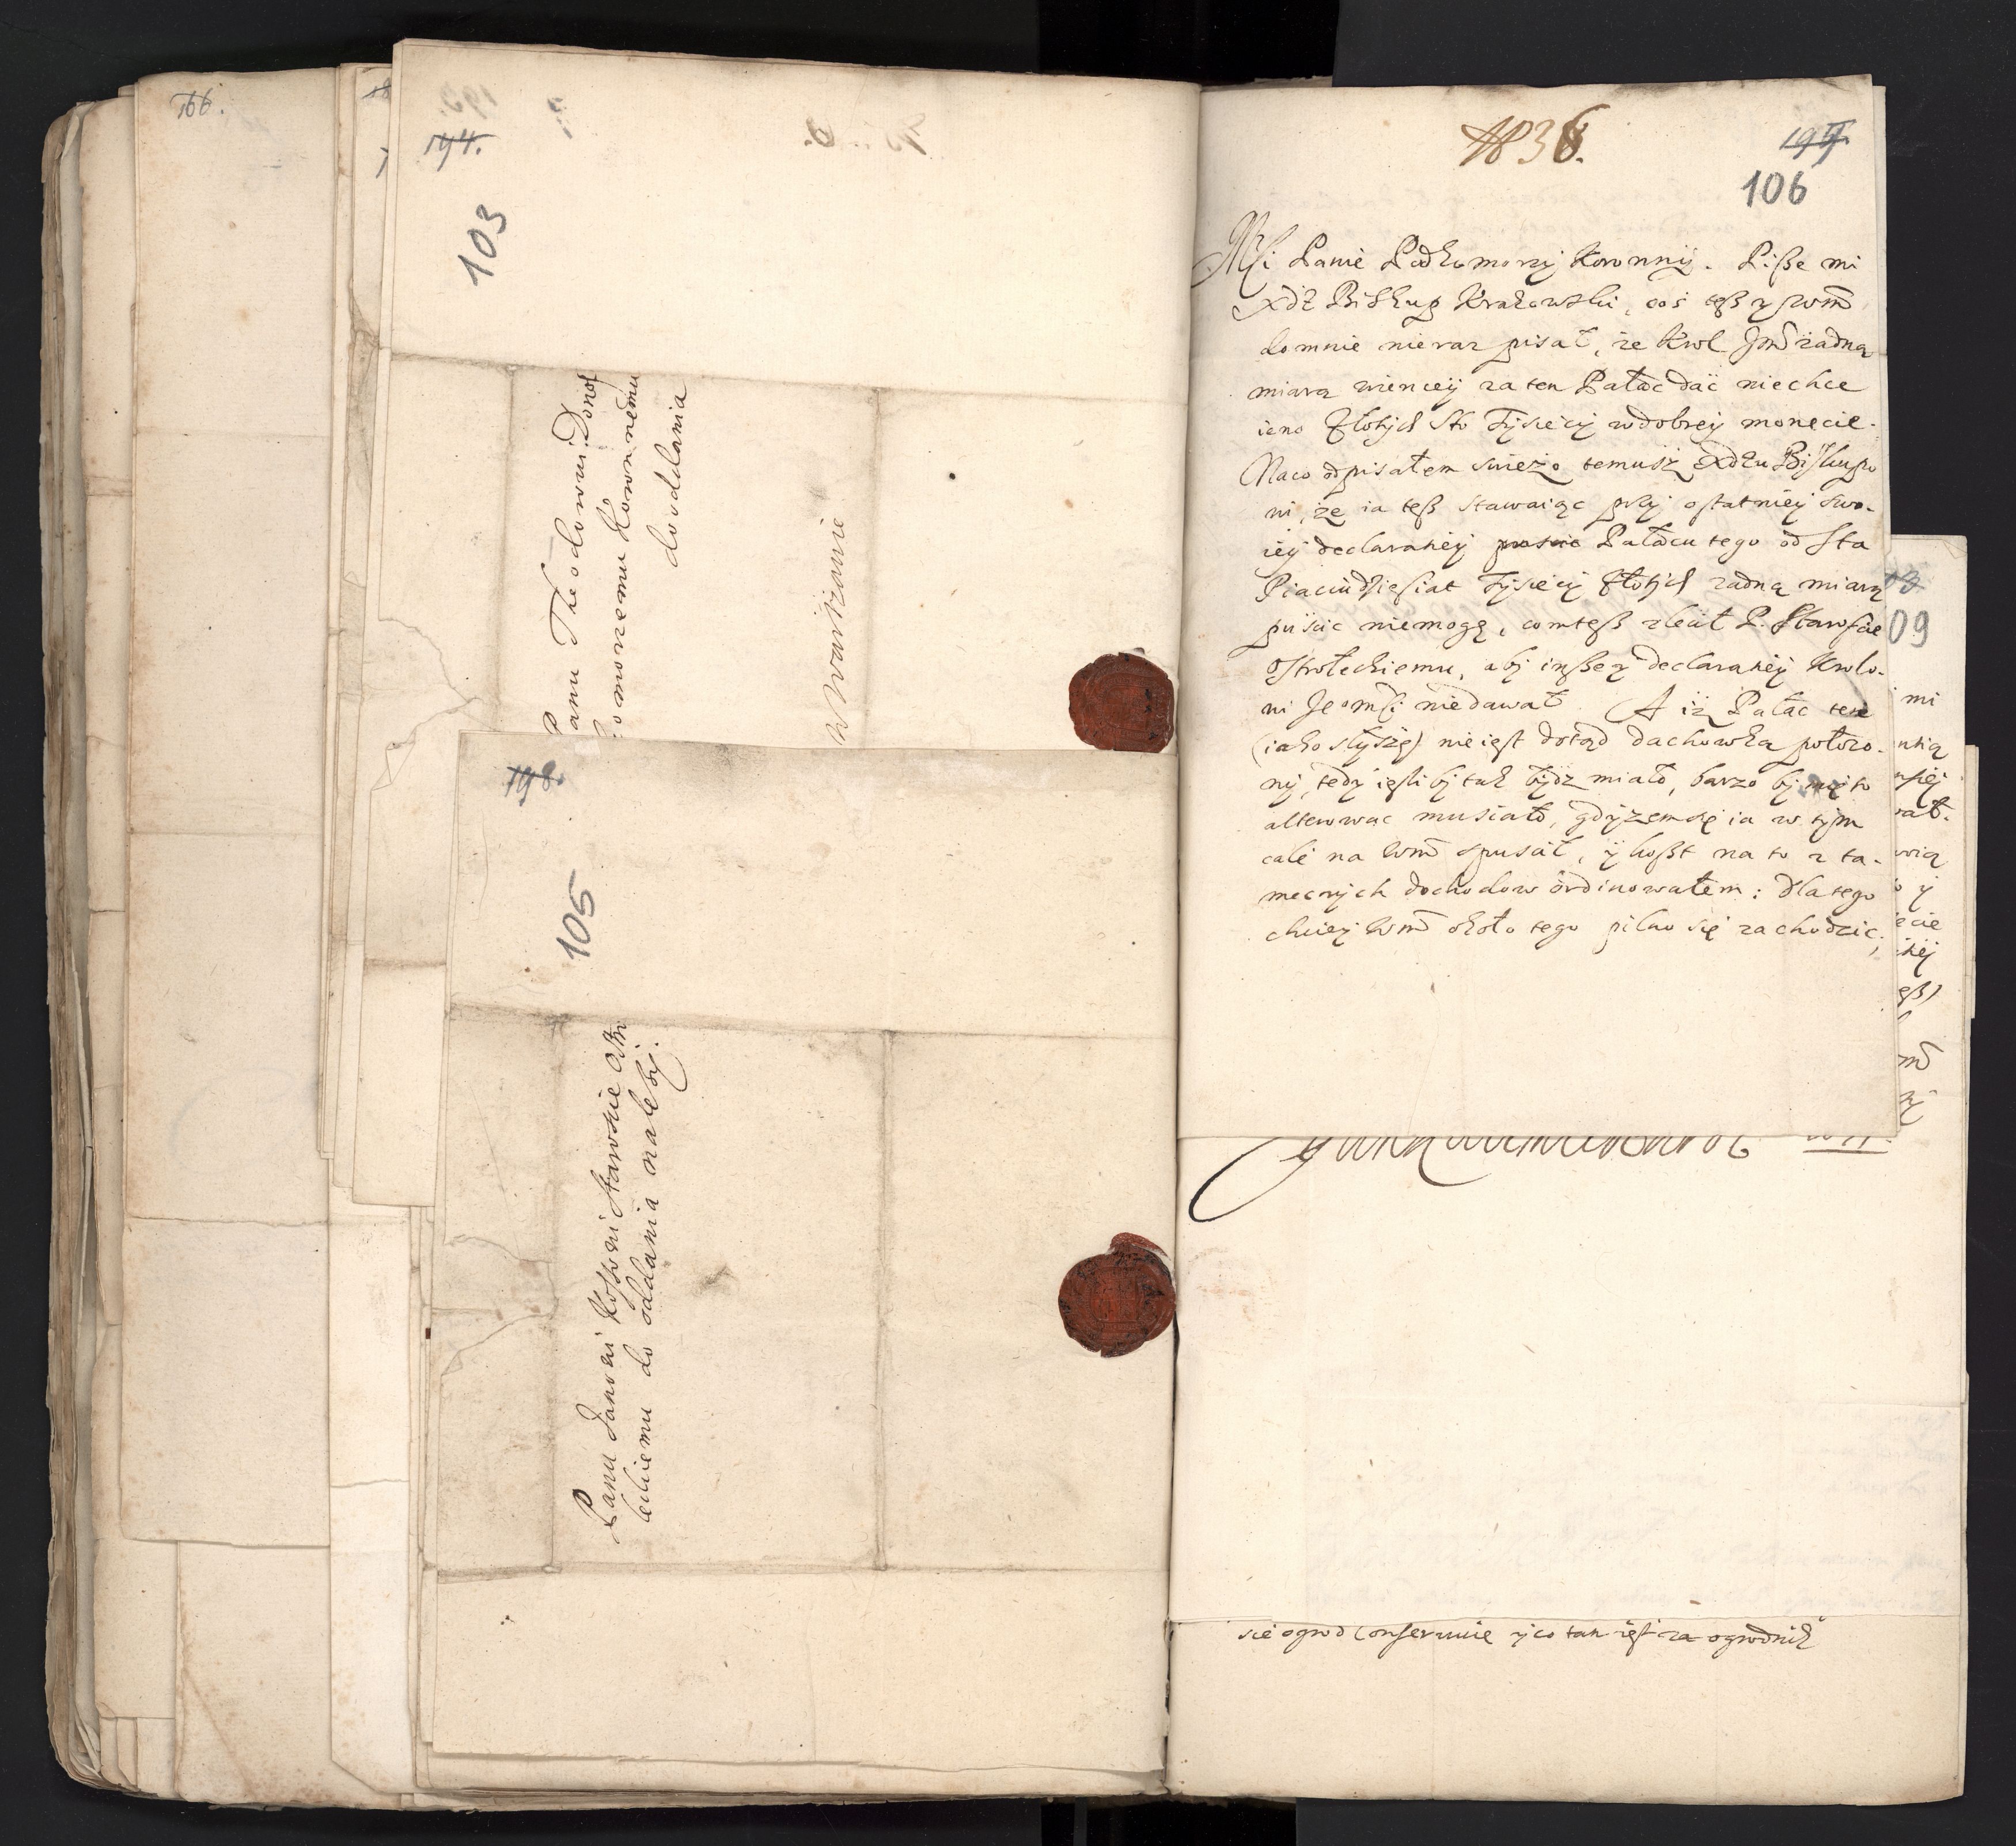 166.
194.
103
Panu Theodorowi Donof
komorzemu Koronnemu
do oddania
w Warszawie
198.
105
Panu Janowi Kossowi Staroscie Ostro
leckiemu do oddania nalezy.
N 36.
197.
106
Msci Panie Podkomorzy Koronny. Pisze mi
Xdz Biskup Krakowski, cos tesz y Wm
do mnie nieraz pisał, ze Krol Jm zadną
miarą wiencey za ten Pałac dać niechce
ieno Złotych Sto Tysiecy w dobrey monecie.
Naco odpisałem swiezo temusz Xdzu Biskupo
wi, ze ia tesz stawaiąc przy ostatniey swo-
iey declaratiey Pałacu tego od Sta
Piaciudziesiat Tysiecy Złotych zadną miarą
puscic niemogę, com tesz zlecił P. Staroscie
Ostrołeckiemu, aby inszey declaratiey Krolo-
wi Jeomsci niedawał. A iz Pałac ten
(iako słyszę) nieiest dotąd dachowką połozo-
ny, tedy iesliby tak bydz miało, barzo by mię to
alterowac musiało, gdyzem się ia w tym
cale na Wm spuscił, y koszt na to z ta-
mecznych dochodow ordinowałem: Dlatego
chciey Wm około tego pilno się zachodzic,
09
mi
Jan Kazimierz Krol
sie ogrod conserwuie y co tam iest za ogrodnik